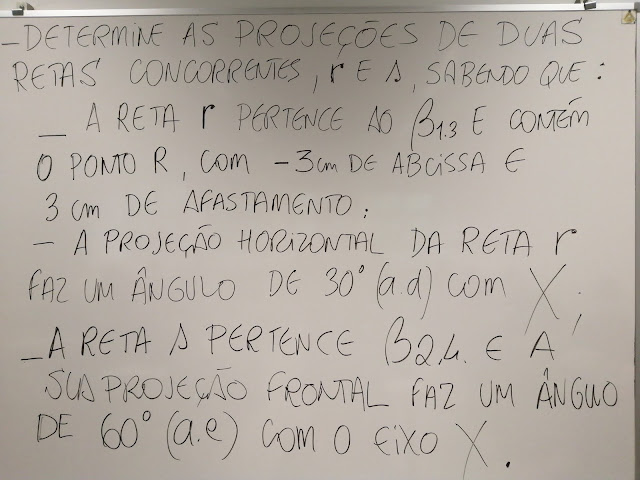 - DETERMINE AS PROJEÇÕES DE DUAS
RETAS CONCORRENTES, r E s, SABENDO QUE:
- A RETA r PERTENCE AO β1.3 E CONTÉM
O PONTO R, COM -3cm DE ABCISSA E
3 cm DE AFASTAMENTO;
- A PROJEÇÃO HORIZONTAL DA RETA r
FAZ UM ÂNGULO DE 30° (a.d) COM X;
- A RETA s PERTENCE β2.4. E A
SUA PROJEÇÃO FRONTAL FAZ UM ÂNGULO
DE 60° (a.e) COM O EIXO X.